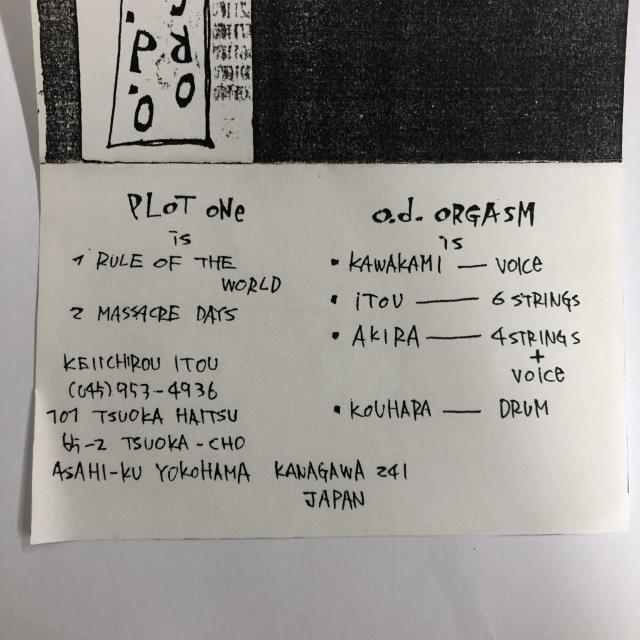 P.O.
RO
PLOT ONE
is
1 RULE OF THE
WORLD
2 MASSACRE DAYS
KEIICHIROU ITOU
(045)953-4936
101 TSUOKA HAITSU
TSUOKA-CHO
ASAHI-KU YOKOHAMA KANAGAWA 241
JAPAN
o.d. ORGASM
is
• KAWAKAMI — VOICE
• ITOU — 6 STRINGS
• AKIRA — 4 STRINGS
+
VOICE
• KOUHARA — DRUM